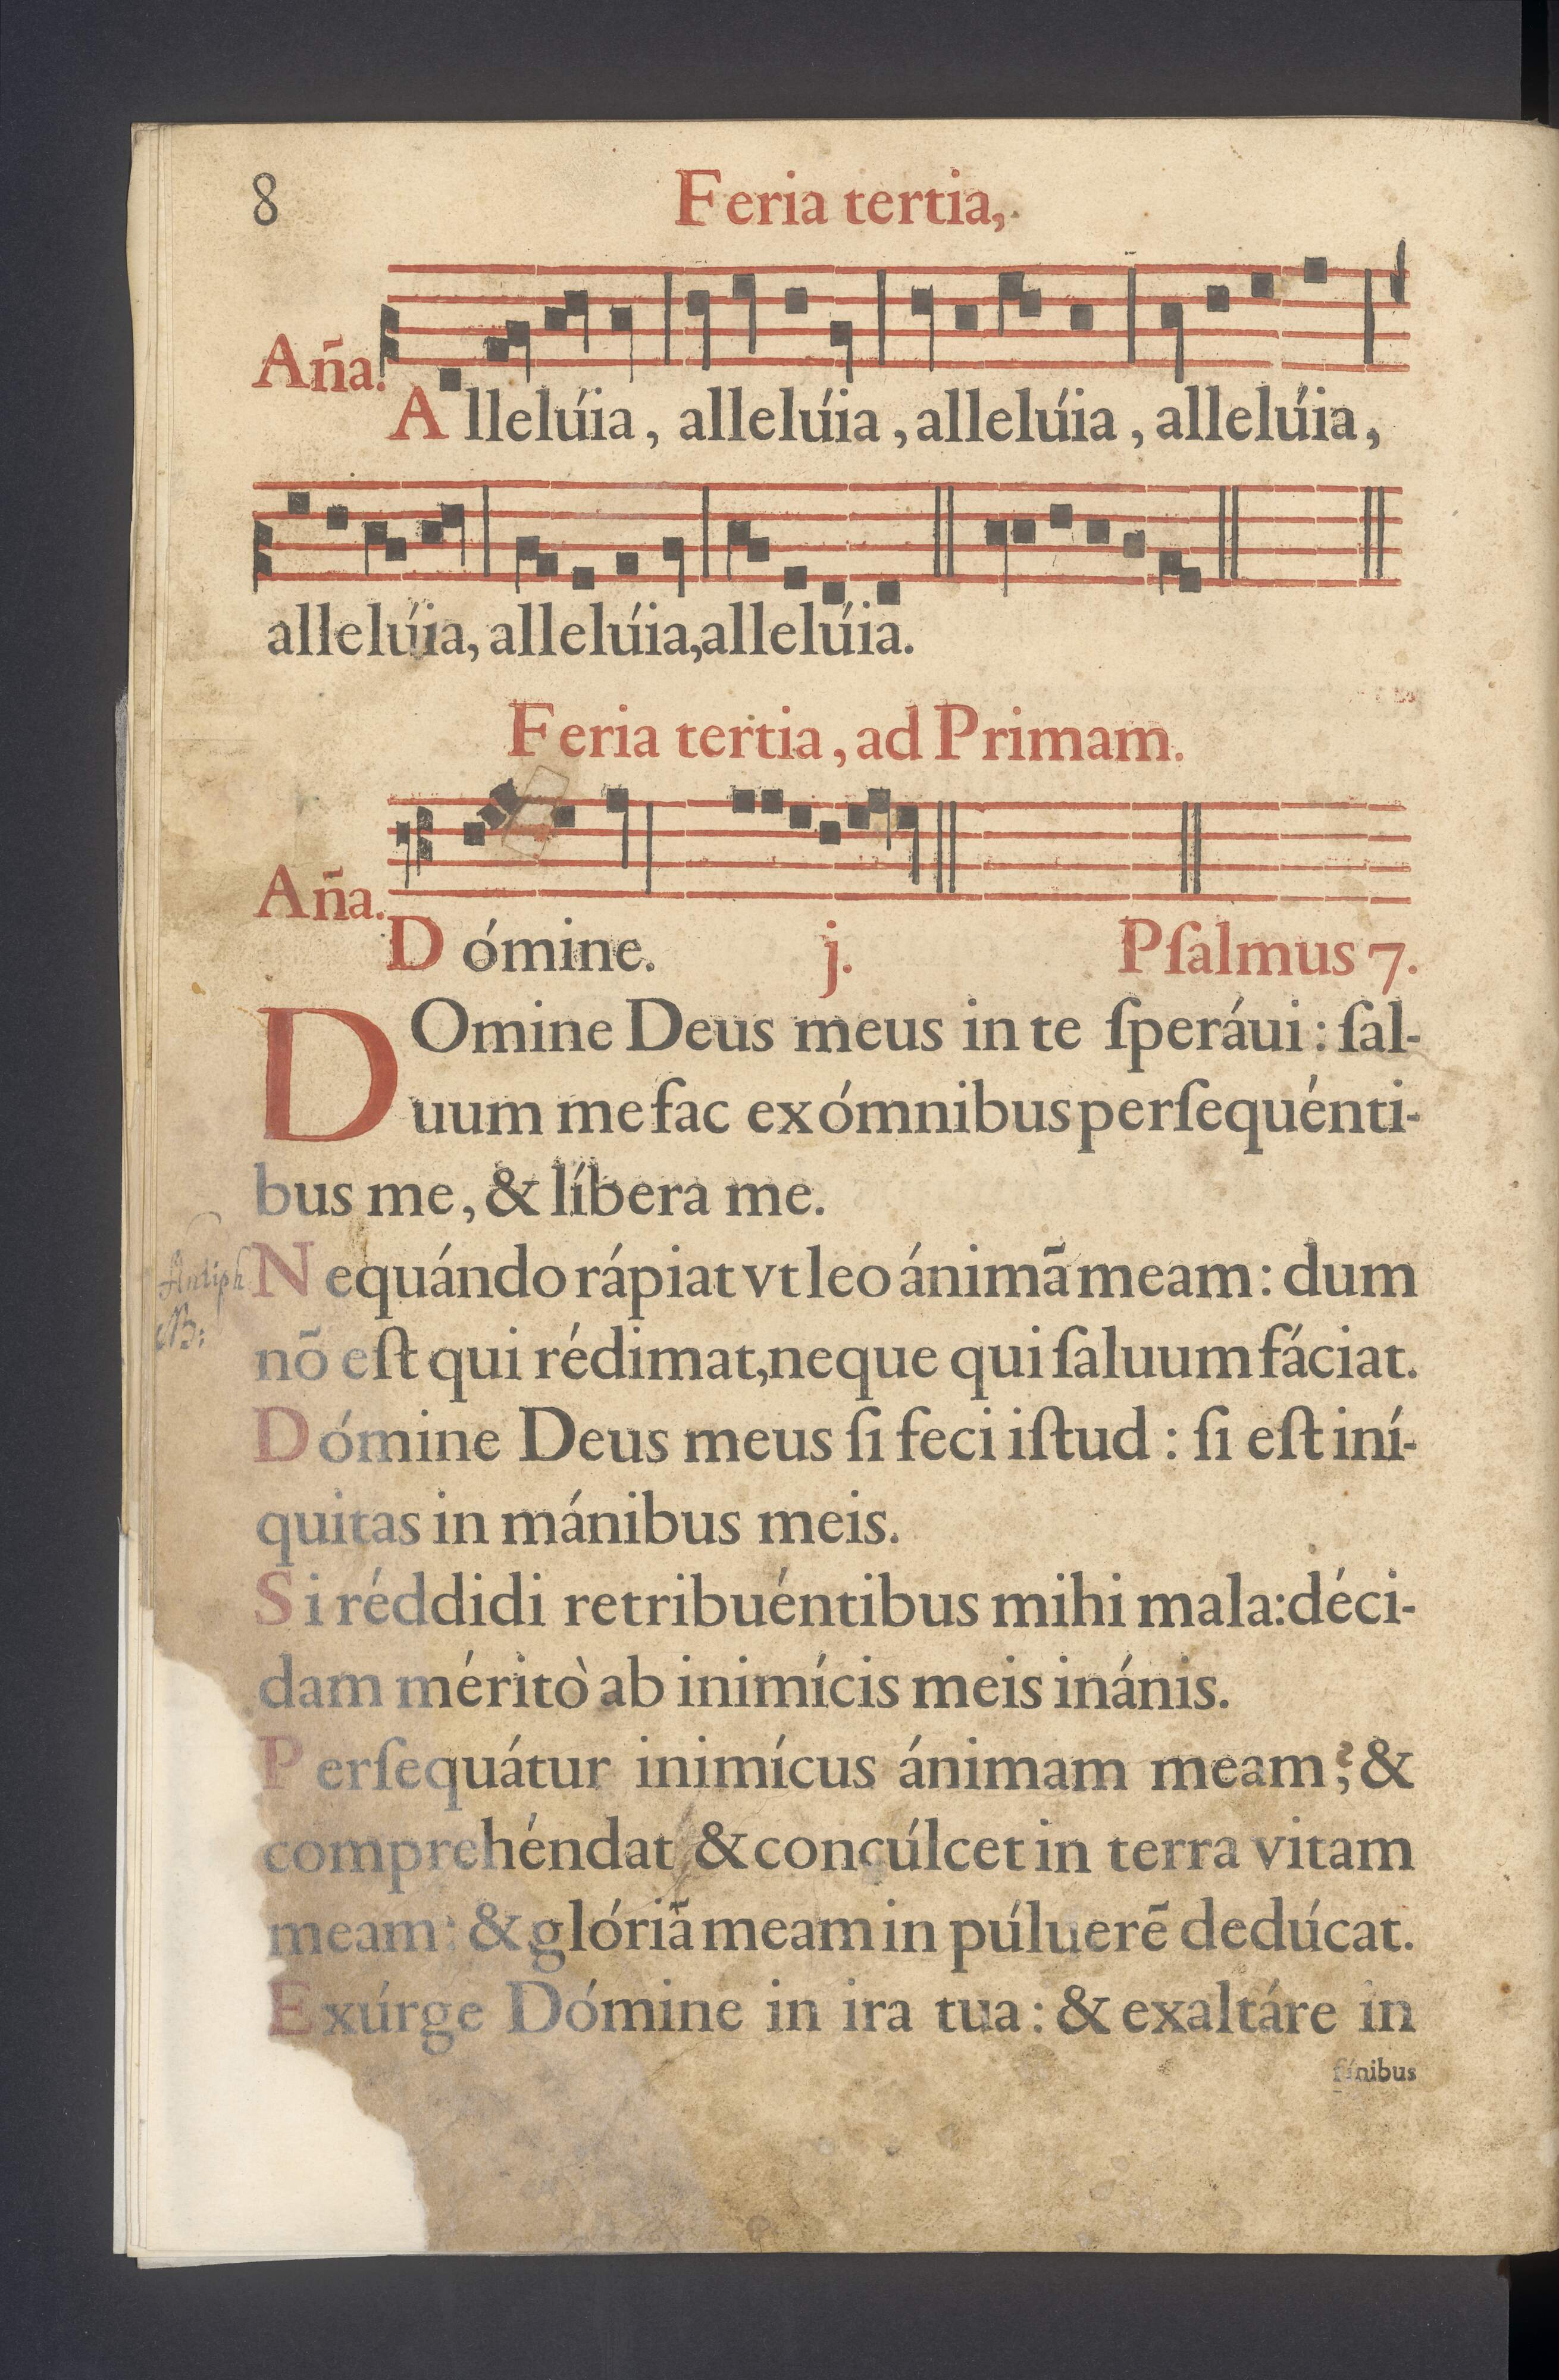 8
Feria tertia,
Aña.
Allelúia, allelúia, allelúia, allelúia,
allelúia, allelúia, allelúia.
Feria tertia, ad Primam.
Aña.
Dómine. j. Pſalmus 7.
DOmine Deus meus in te ſperáui: ſal-
uum me fac ex ómnibus perſequénti-
bus me, & líbera me.
Antiph
Nequándo rápiat vt leo ánimã meam: dum
nõ eſt qui rédimat, neque qui ſaluum fáciat.
Dómine Deus meus ſi feci iſtud: ſi eſt iní-
quitas in mánibus meis.
Si réddidi retribuéntibus mihi mala: déci-
dam méritò ab inimícis meis inánis.
Perſequátur inimícus ánimam meam, &
comprehéndat, & concúlcet in terra vitam
meam: & glóriã meam in púluerẽ dedúcat.
Exúrge Dómine in ira tua: & exaltáre in
fínibus